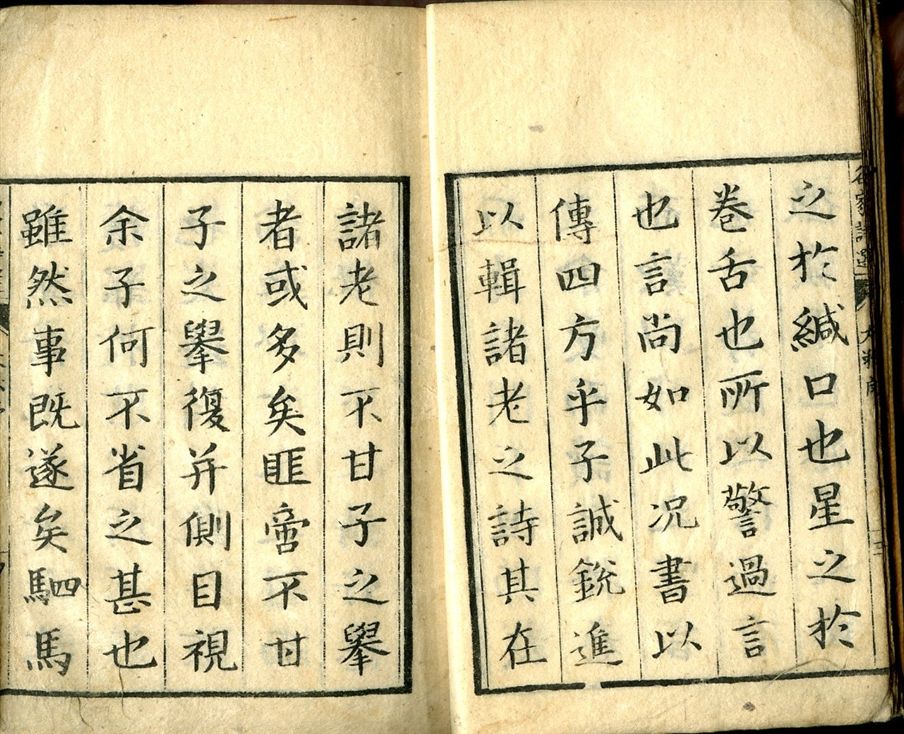 之扵緘口也星之扵
卷舌也所以警過言
也言尚如此况書以
傳四方乎子誠銳進
以輯諸老之詩其在
諸老則不甘子之擧
者或多矣匪啻不甘
子之擧復并側目視
余子何不省之甚也
雖然事既遂矣駟馬